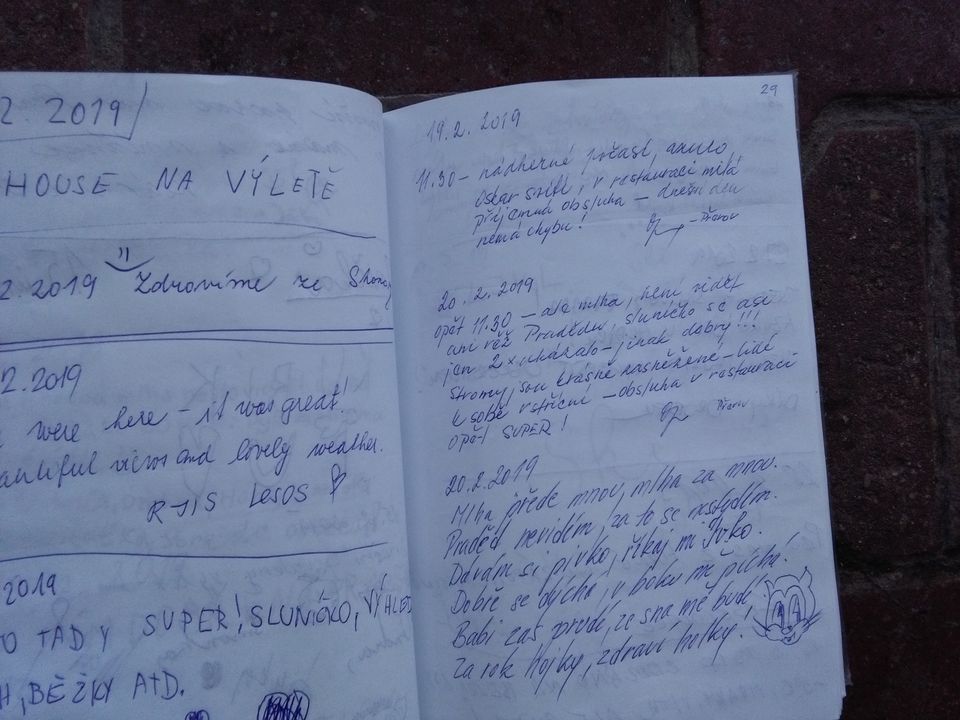 2. 2019
HOUSE NA VÝLETĚ
2.2019 Zdravíme ze
2.2019
were here - it was great!
autiful views and lovely weather.
LESOS
2019
O TADY SUPER! SLUNÍČKO, VÝHLED
H, BĚŽKY ATD.
29
19.2. 2019
11.30 - nádherné počasí,
svítí, v restauraci milá
příjemná obsluha - dnešní den
nemá chybu!
- Přerov
20. 2. 2019
opět 11.30 - ale mlha, není vidět
ani věž Pradědu, sluníčko se asi
jen 2x ukázalo - jinak dobrý!!!
Stromy jsou krásně zasněžené - lidé
k sobě vstřícní - obsluha v restauraci
opět SUPER!
Přerov
20.2.2019
Mlha přede mnou, mlha za mnou.
Praděd nevidím, za to se nestydím.
Dávám si pivko, říkaj mi Ivko.
Dobře se dýchá, v boku mě píchá.
Babi zas přijde, ze sna mě bude
Za rok Hojky, zdraví holky!